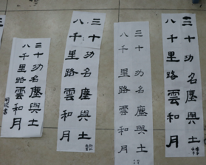 三十功名塵與土
八千里路雲和月
三十功名塵與土
八千里路雲和月
三十功名塵與土
八千里路雲和月
三十功名塵與土
八千里路雲和月